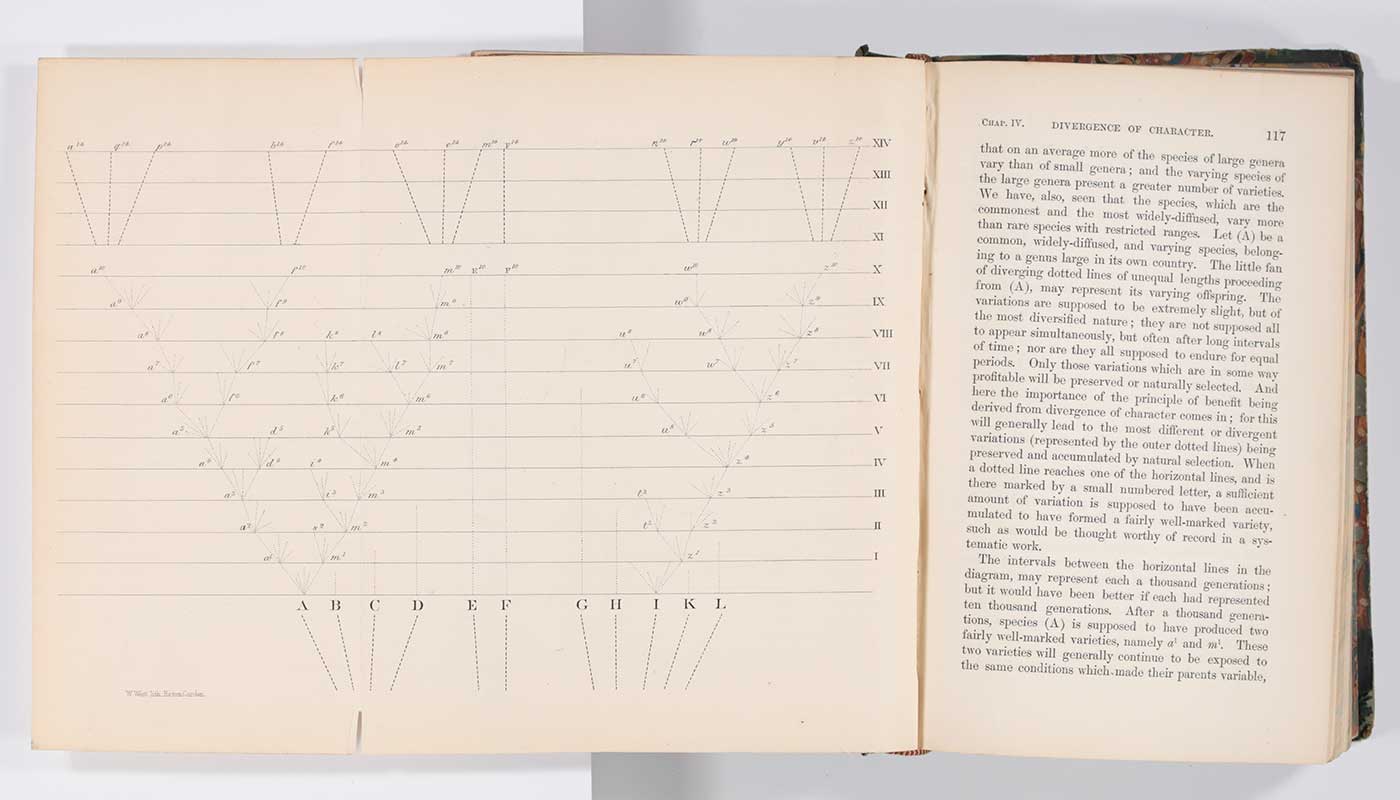 a¹⁴ q¹⁴ p¹⁴ b¹⁴ f¹⁴ o¹⁴ e¹⁴ m¹⁴ F¹⁴ n¹⁴ r¹⁴ w¹⁴ y¹⁴ v¹⁴ z¹⁴ XIV
XIII
XII
XI
a¹⁰ f¹⁰ m¹⁰ E¹⁰ F¹⁰ w¹⁰ z¹⁰ X
a⁹ f⁹ m⁹ w⁹ z⁹ IX
a⁸ f⁸ k⁸ l⁸ m⁸ u⁸ w⁸ z⁸ VIII
a⁷ f⁷ k⁷ l⁷ m⁷ u⁷ w⁷ z⁷ VII
a⁶ f⁶ k⁶ m⁶ u⁶ z⁶ VI
a⁵ d⁵ k⁵ m⁵ u⁵ z⁵ V
a⁴ d⁴ i⁴ m⁴ z⁴ IV
a³ i³ m³ t³ z³ III
a² s² m² t² z² II
a¹ m¹ z¹ I
A B C D E F G H I K L
W. West lith. Hatton Garden.
CHAP. IV. DIVERGENCE OF CHARACTER. 117
that on an average more of the species of large genera
vary than of small genera; and the varying species of
the large genera present a greater number of varieties.
We have, also, seen that the species, which are the
commonest and the most widely-diffused, vary more
than rare species with restricted ranges. Let (A) be a
common, widely-diffused, and varying species, belong-
ing to a genus large in its own country. The little fan
of diverging dotted lines of unequal lengths proceeding
from (A), may represent its varying offspring. The
variations are supposed to be extremely slight, but of
the most diversified nature; they are not supposed all
to appear simultaneously, but often after long intervals
of time; nor are they all supposed to endure for equal
periods. Only those variations which are in some way
profitable will be preserved or naturally selected. And
here the importance of the principle of benefit being
derived from divergence of character comes in; for this
will generally lead to the most different or divergent
variations (represented by the outer dotted lines) being
preserved and accumulated by natural selection. When
a dotted line reaches one of the horizontal lines, and is
there marked by a small numbered letter, a sufficient
amount of variation is supposed to have been accu-
mulated to have formed a fairly well-marked variety,
such as would be thought worthy of record in a sys-
tematic work.
The intervals between the horizontal lines in the
diagram, may represent each a thousand generations;
but it would have been better if each had represented
ten thousand generations. After a thousand genera-
tions, species (A) is supposed to have produced two
fairly well-marked varieties, namely a¹ and m¹. These
two varieties will generally continue to be exposed to
the same conditions which made their parents variable,